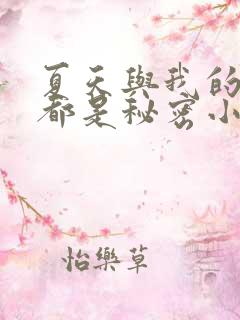 夏天與我的
都是秘密小
怡樂草